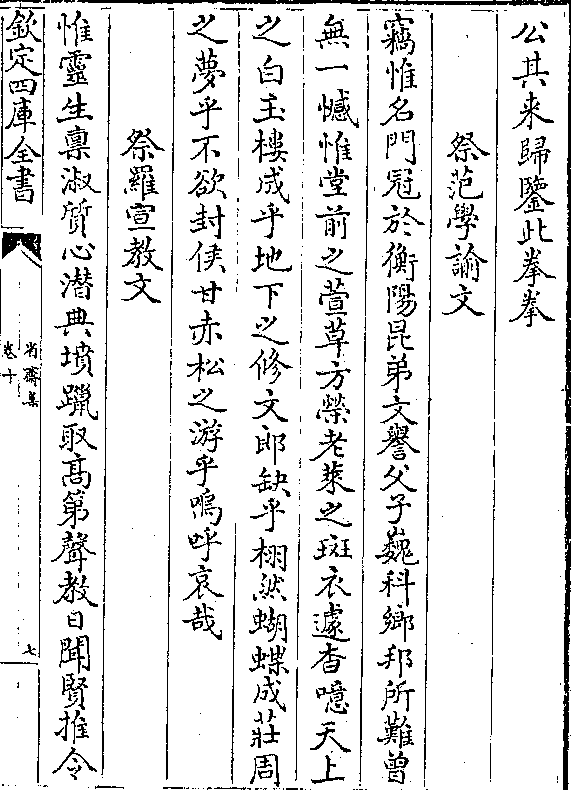 公其来歸鑒此拳拳
祭范學諭文
竊惟名門冠於衡陽昆弟文譽父子巍科鄉邦所難曽
無一憾惟堂前之萱草方榮老萊之斑衣遽杳噫天上
之白玉樓成乎地下之修文郎缺乎栩然蝴蝶成莊周
之夢乎不欲封侯甘赤松之游乎嗚呼哀哉
祭羅宣教文
惟靈生禀淑質心潛典墳躐取髙第聲教日聞賢推令
欽定四庫全書
省齋集
卷十
七